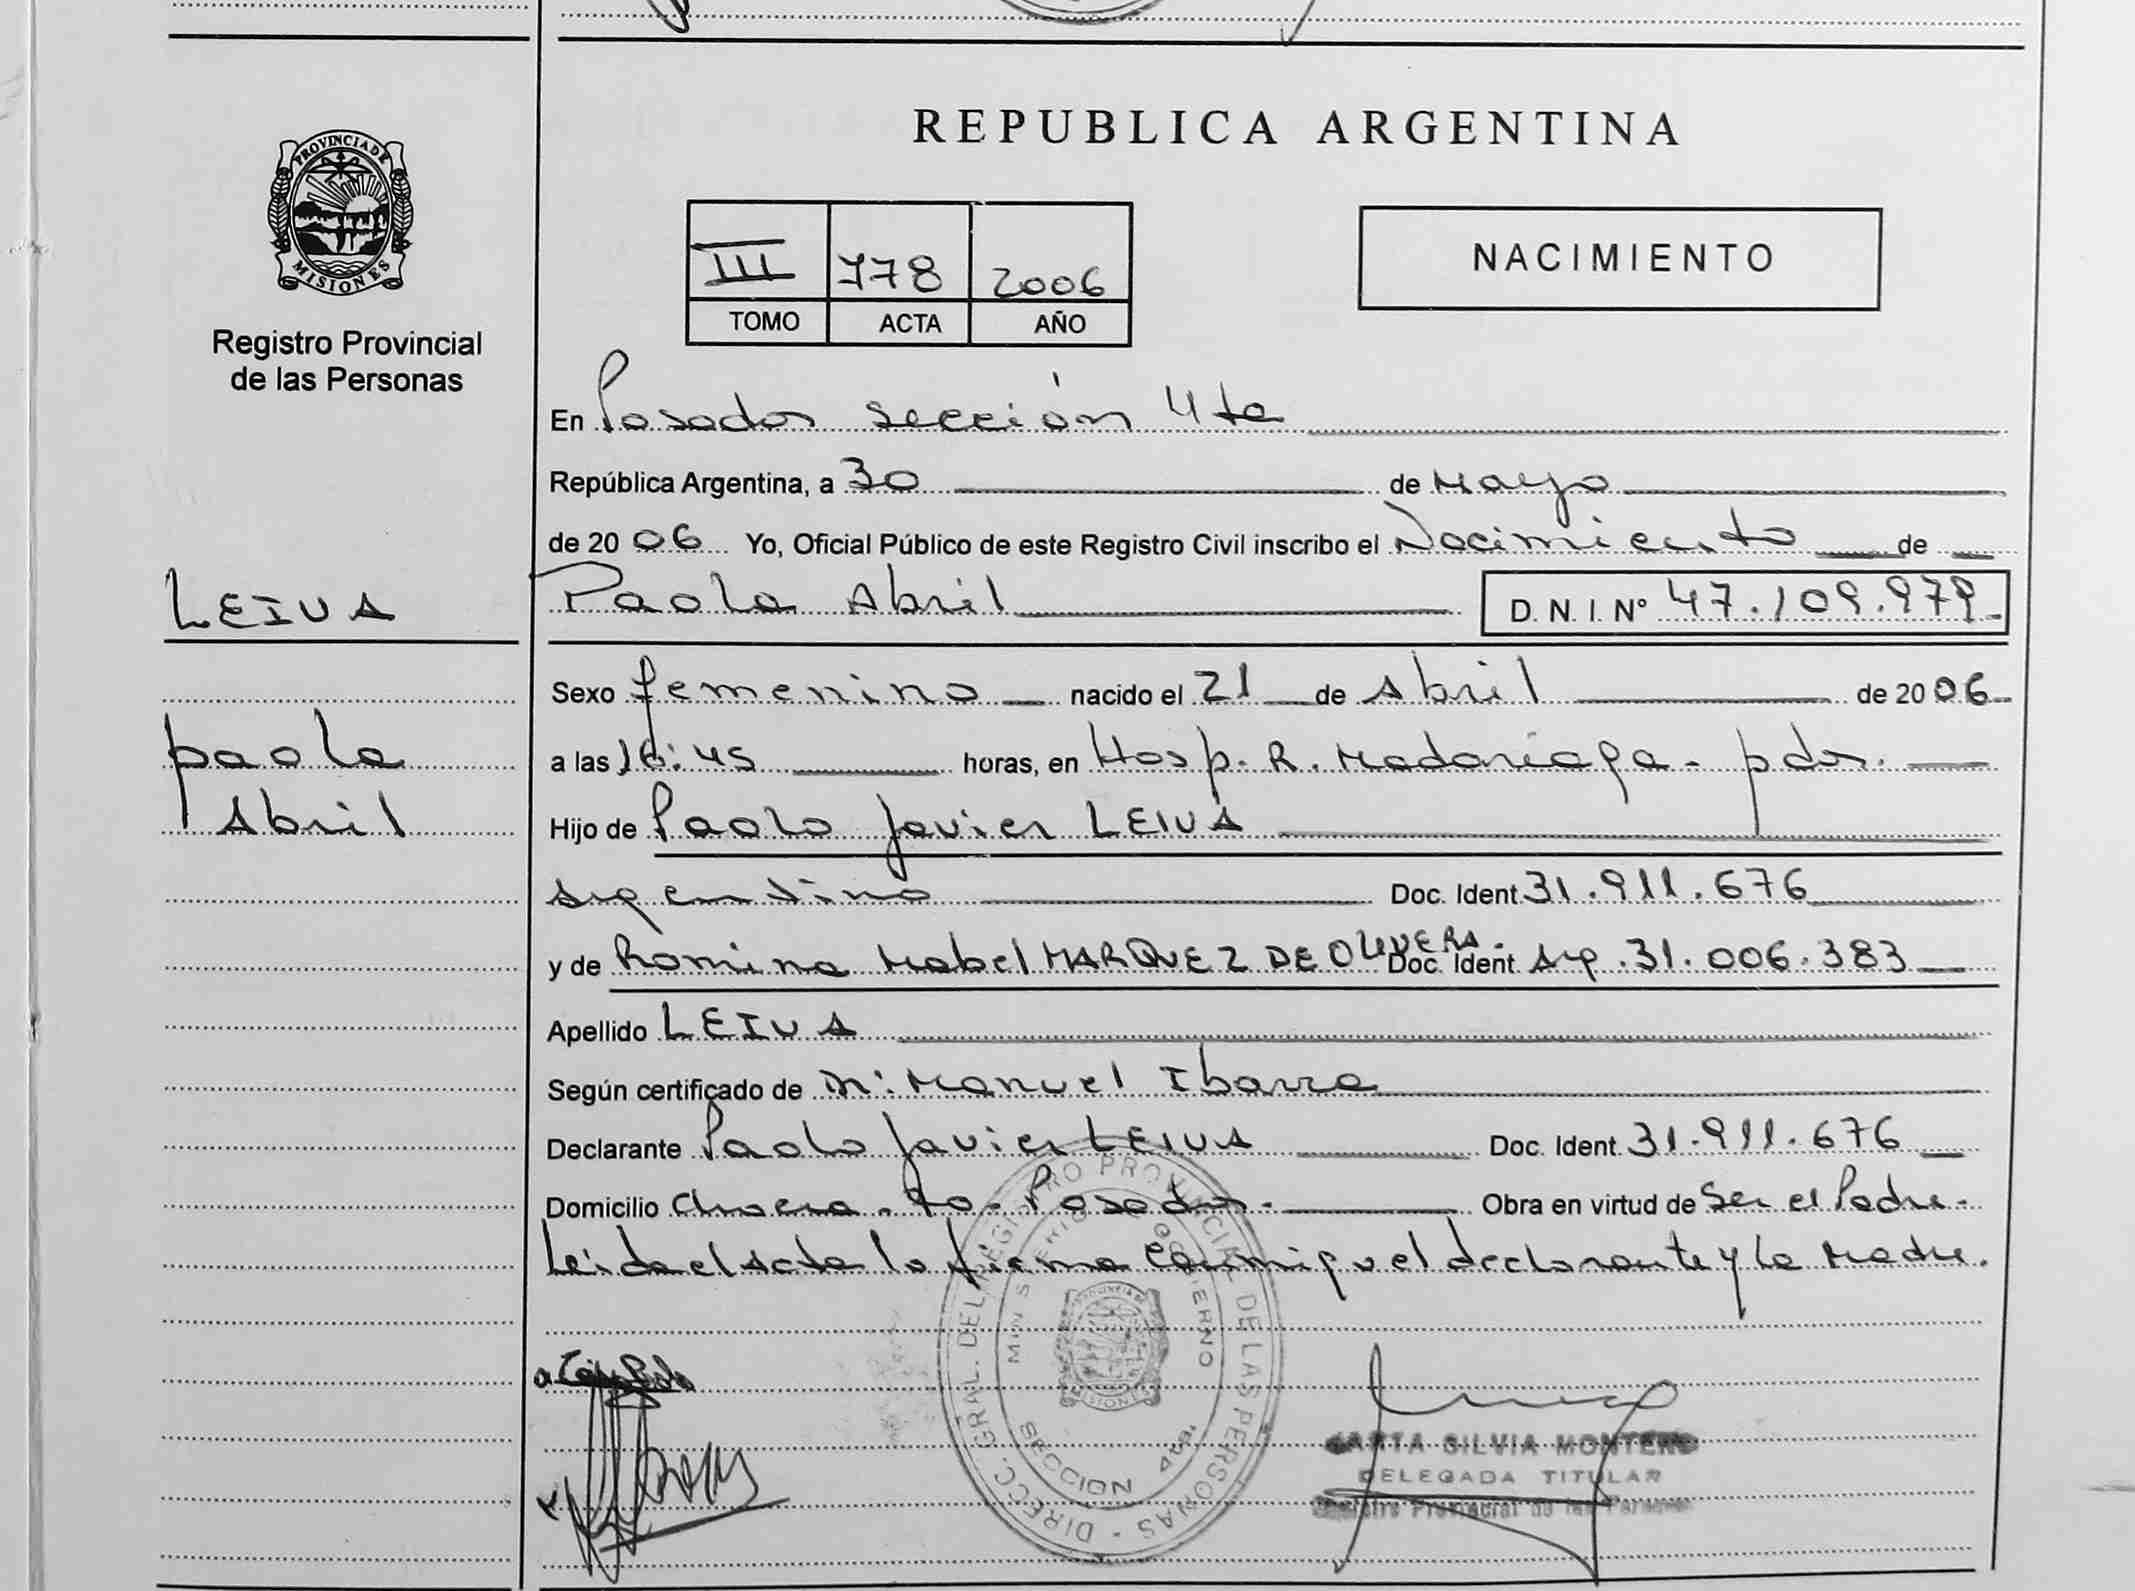 PROVINCIA DE
MISIONES
Registro Provincial
de las Personas
LEIVA
Paola
Abril
REPUBLICA ARGENTINA
III 778 2006
TOMO ACTA AÑO
NACIMIENTO
En Posadas sección 4ta
República Argentina, a 30 de Mayo
de 2006 Yo, Oficial Público de este Registro Civil inscribo el Nacimiento de
Paola Abril D. N. I. Nº 47.109.979
Sexo femenino nacido el 21 de Abril de 2006
a las 16:45 horas, en Hosp. R. Madariaga - pdas.
Hijo de Paolo Javier LEIVA
Argentino Doc. Ident. 31.911.676
y de Romina Mabel MARQUEZ DE OLIVERA. Doc. Ident. Arg. 31.006.383
Apellido LEIVA
Según certificado de Manuel Ibarra
Declarante Paolo Javier LEIVA Doc. Ident. 31.911.676
Domicilio Posadas. Obra en virtud de Ser el Padre.
Leida el Acta la firma conmigo el declarante y la Madre.
DIRECC. GRAL. DEL REGISTRO PROVINCIAL DE LAS PERSONAS
MINISTERIO DE GOBIERNO
SECCION 4ta.
SILVIA MONTERO
DELEGADA TITULAR
Registro Provincial de las Personas